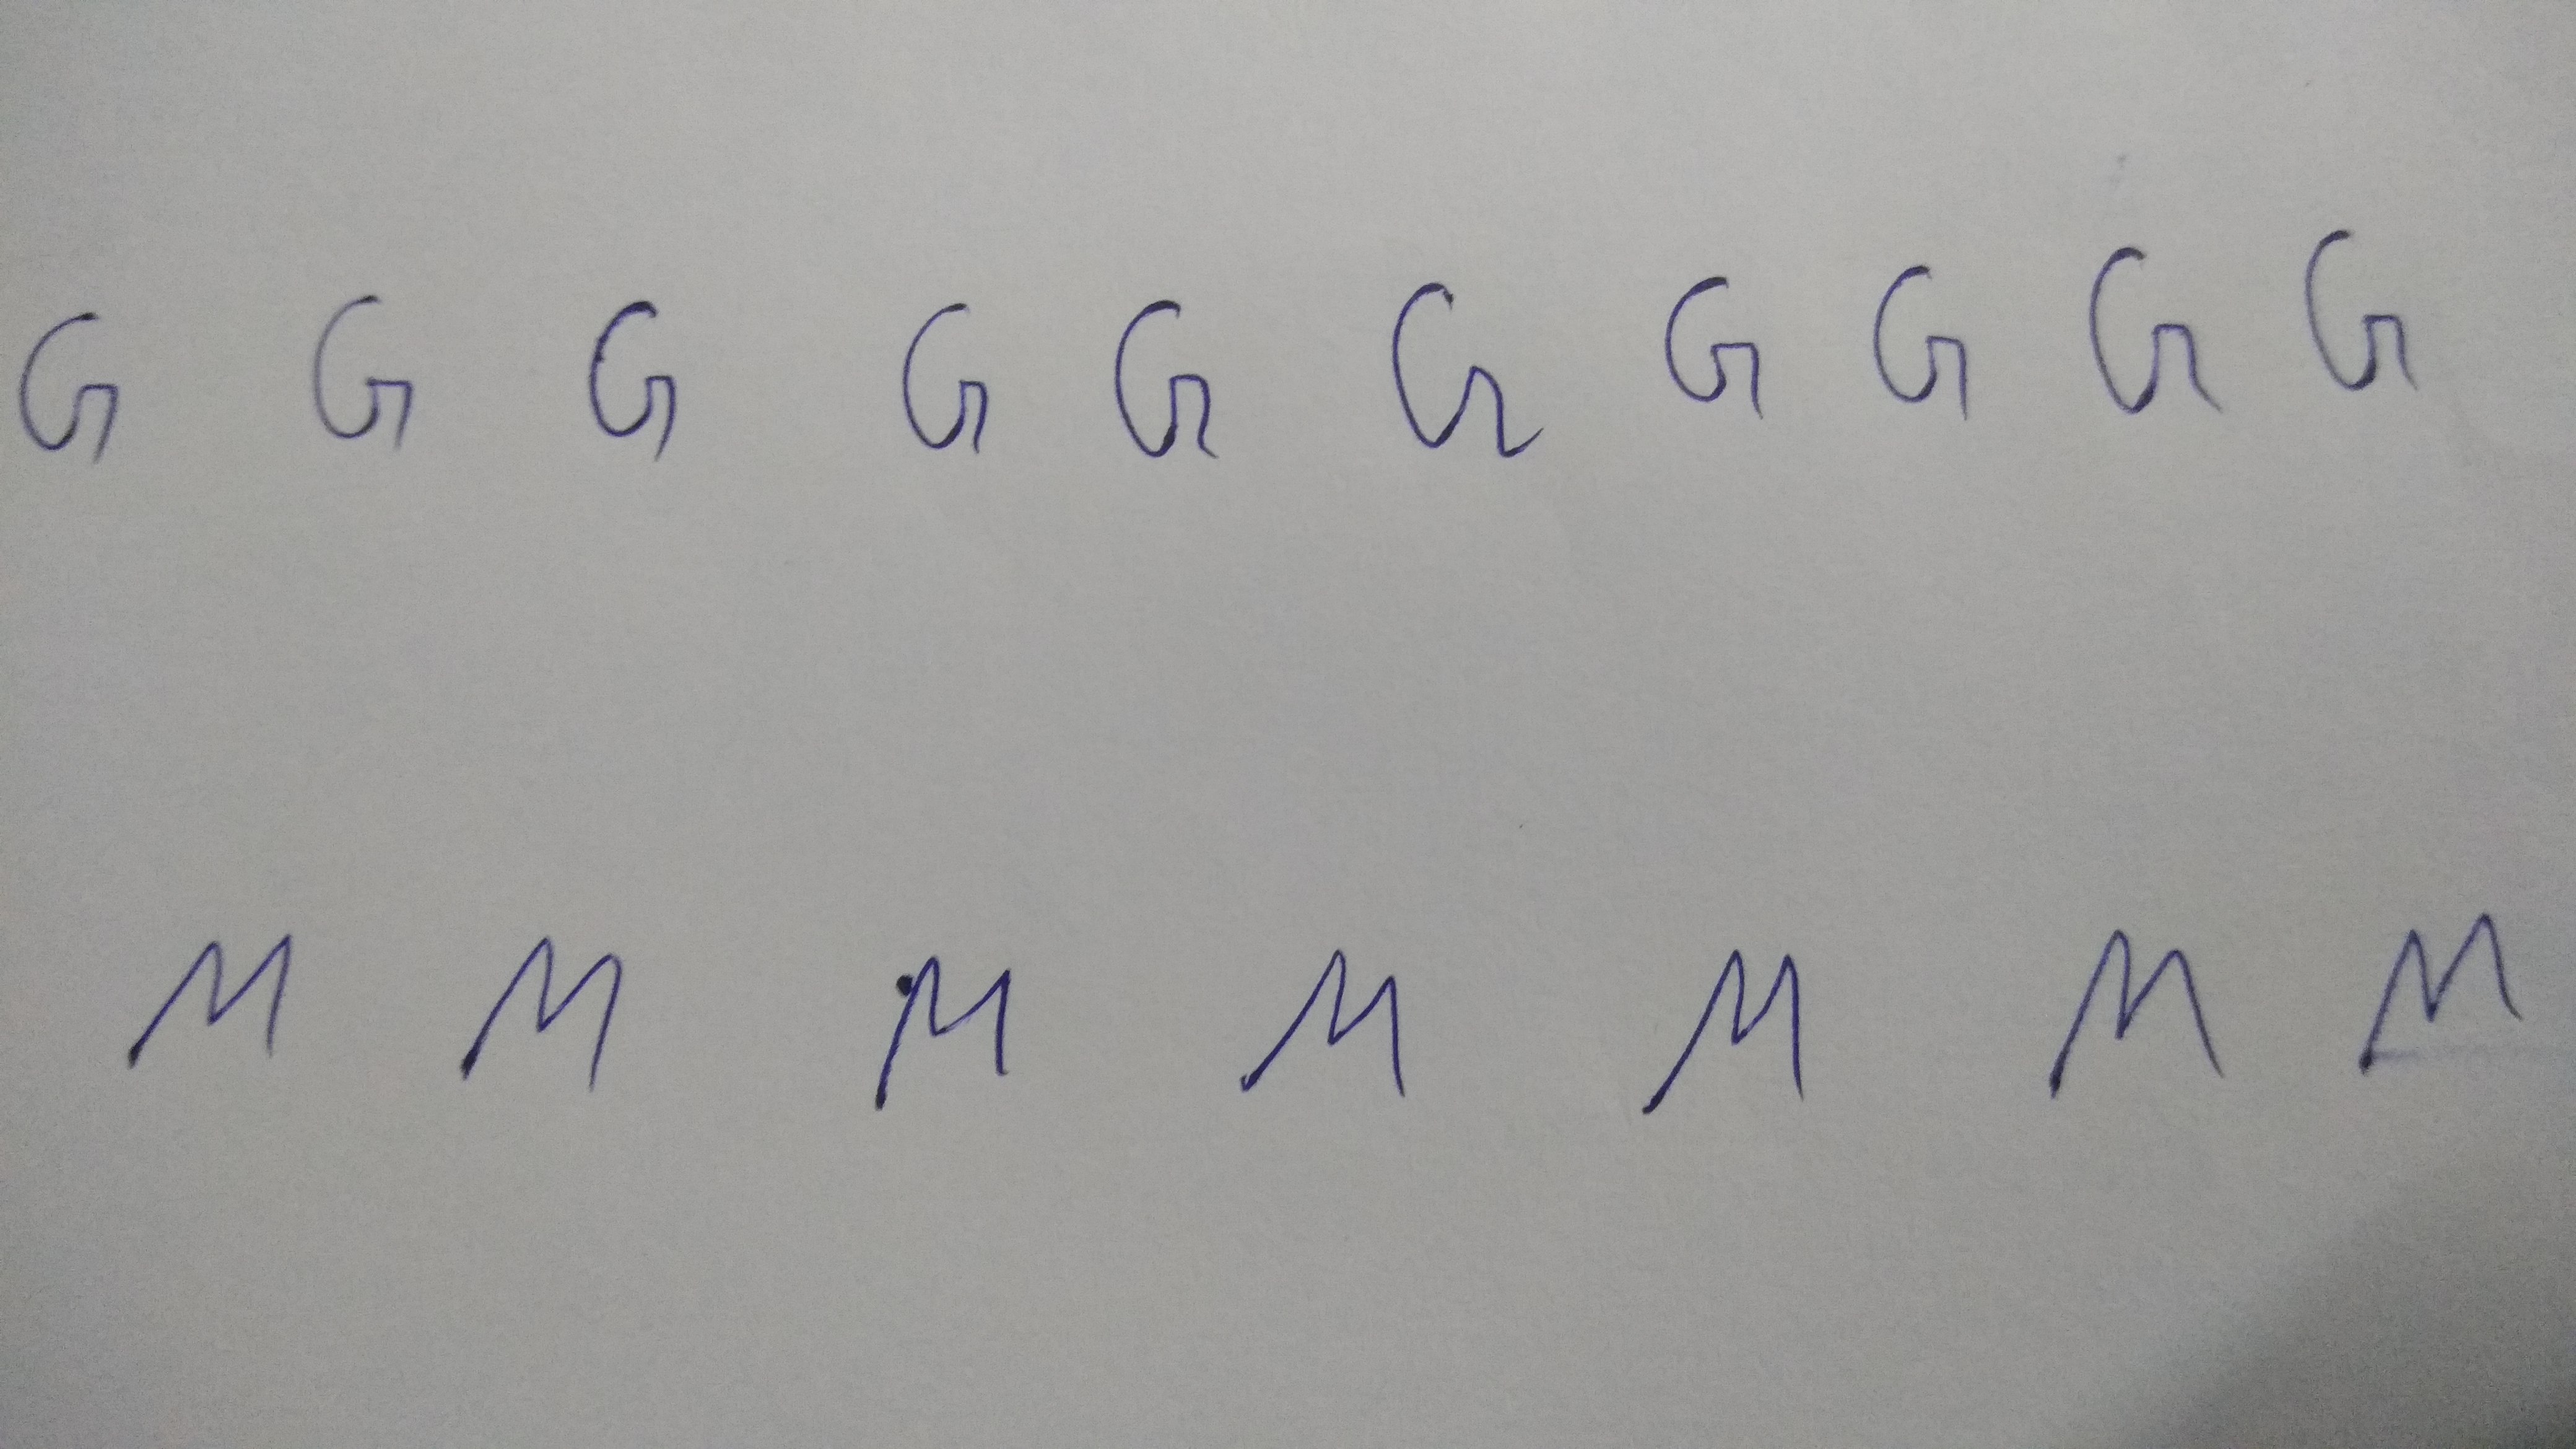 G G G G G G G G G G
M M M M M M M